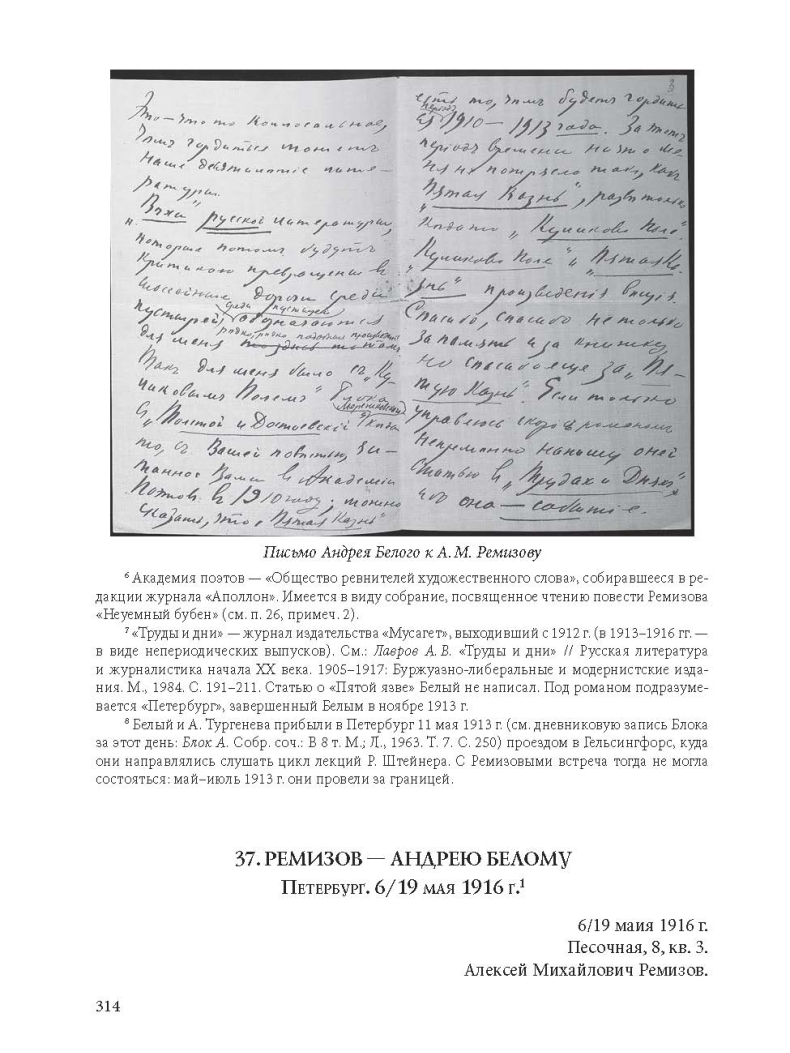 Это — что-то Колоссальное,
чѣмъ гордиться можетъ
наше лите-
ратуры.
„Вѣхи" русской литературы,
которыя потомъ будутъ
критикою превращены въ
дороги среди
среди пустырей
пустырей, обозначаются
для меня
Такъ для меня было съ „Ку-
ликовымъ Полемъ" Блока
Мережковскаго
съ „Толстой и Достоевскій"
то, съ Вашей повѣстью, чи-
танной Вами въ Академіи
Поэтовъ въ 1910 году; можно
сказать, что „Пятая Язва"
8
есть то, чѣмъ будетъ гордить-
періодъ
ся 1910–1913 года. За этотъ
періодъ времени ничто ме-
ня не потрясло такъ, какъ
„Пятая Язва",
„Куликово Поле".
„Куликово Поле" и „Пятая Я-
зва" произведенія
Спасибо, спасибо не только
за память и за книжку,
но спасибо еще за „Пя-
тую Язву". Если только
управлюсь скоро съ романомъ
непременно напишу о ней
статью въ „Трудахъ и Дняхъ",
ибо она — событіе.
Письмо Андрея Белого к А. М. Ремизову
⁶ Академия поэтов — «Общество ревнителей художественного слова», собиравшееся в ре-
дакции журнала «Аполлон». Имеется в виду собрание, посвященное чтению повести Ремизова
«Неуемный бубен» (см. п. 26, примеч. 2).
⁷ «Труды и дни» — журнал издательства «Мусагет», выходивший с 1912 г. (в 1913–1916 гг. —
в виде непериодических выпусков). См.: Лавров А. В. «Труды и дни» // Русская литература
и журналистика начала XX века. 1905–1917: Буржуазно-либеральные и модернистские изда-
ния. М., 1984. С. 191–211. Статью о «Пятой язве» Белый не написал. Под романом подразуме-
вается «Петербург», завершенный Белым в ноябре 1913 г.
⁸ Белый и А. Тургенева прибыли в Петербург 11 мая 1913 г. (см. дневниковую запись Блока
за этот день: Блок А. Собр. соч.: В 8 т. М.; Л., 1963. Т. 7. С. 250) проездом в Гельсингфорс, куда
они направлялись слушать цикл лекций Р. Штейнера. С Ремизовыми встреча тогда не могла
состояться: май–июль 1913 г. они провели за границей.
37. РЕМИЗОВ — АНДРЕЮ БЕЛОМУ
Петербург. 6/19 мая 1916 г.¹
6/19 маия 1916 г.
Песочная, 8, кв. 3.
Алексей Михайлович Ремизов.
314